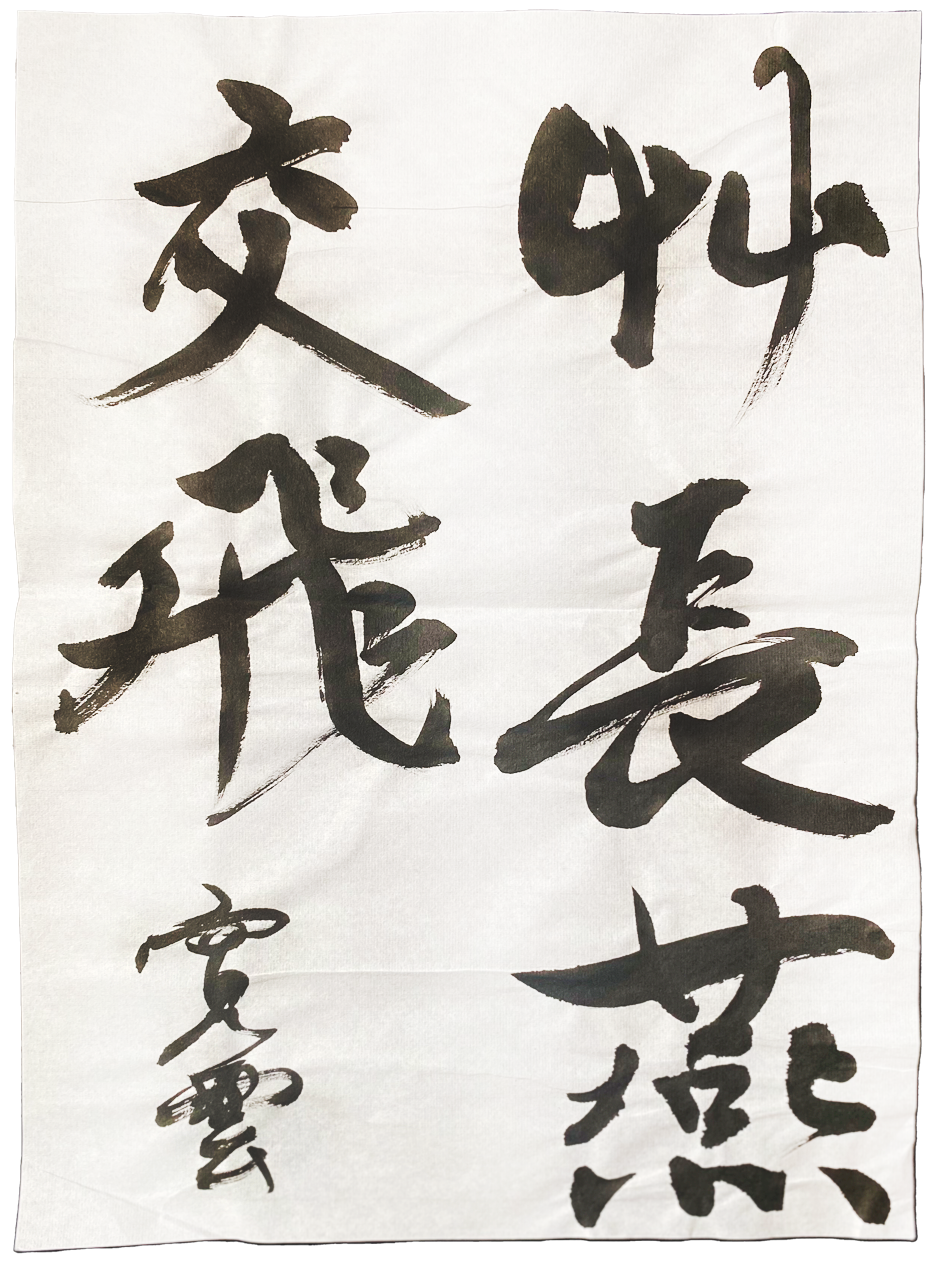 艸長燕
交飛
寛雲